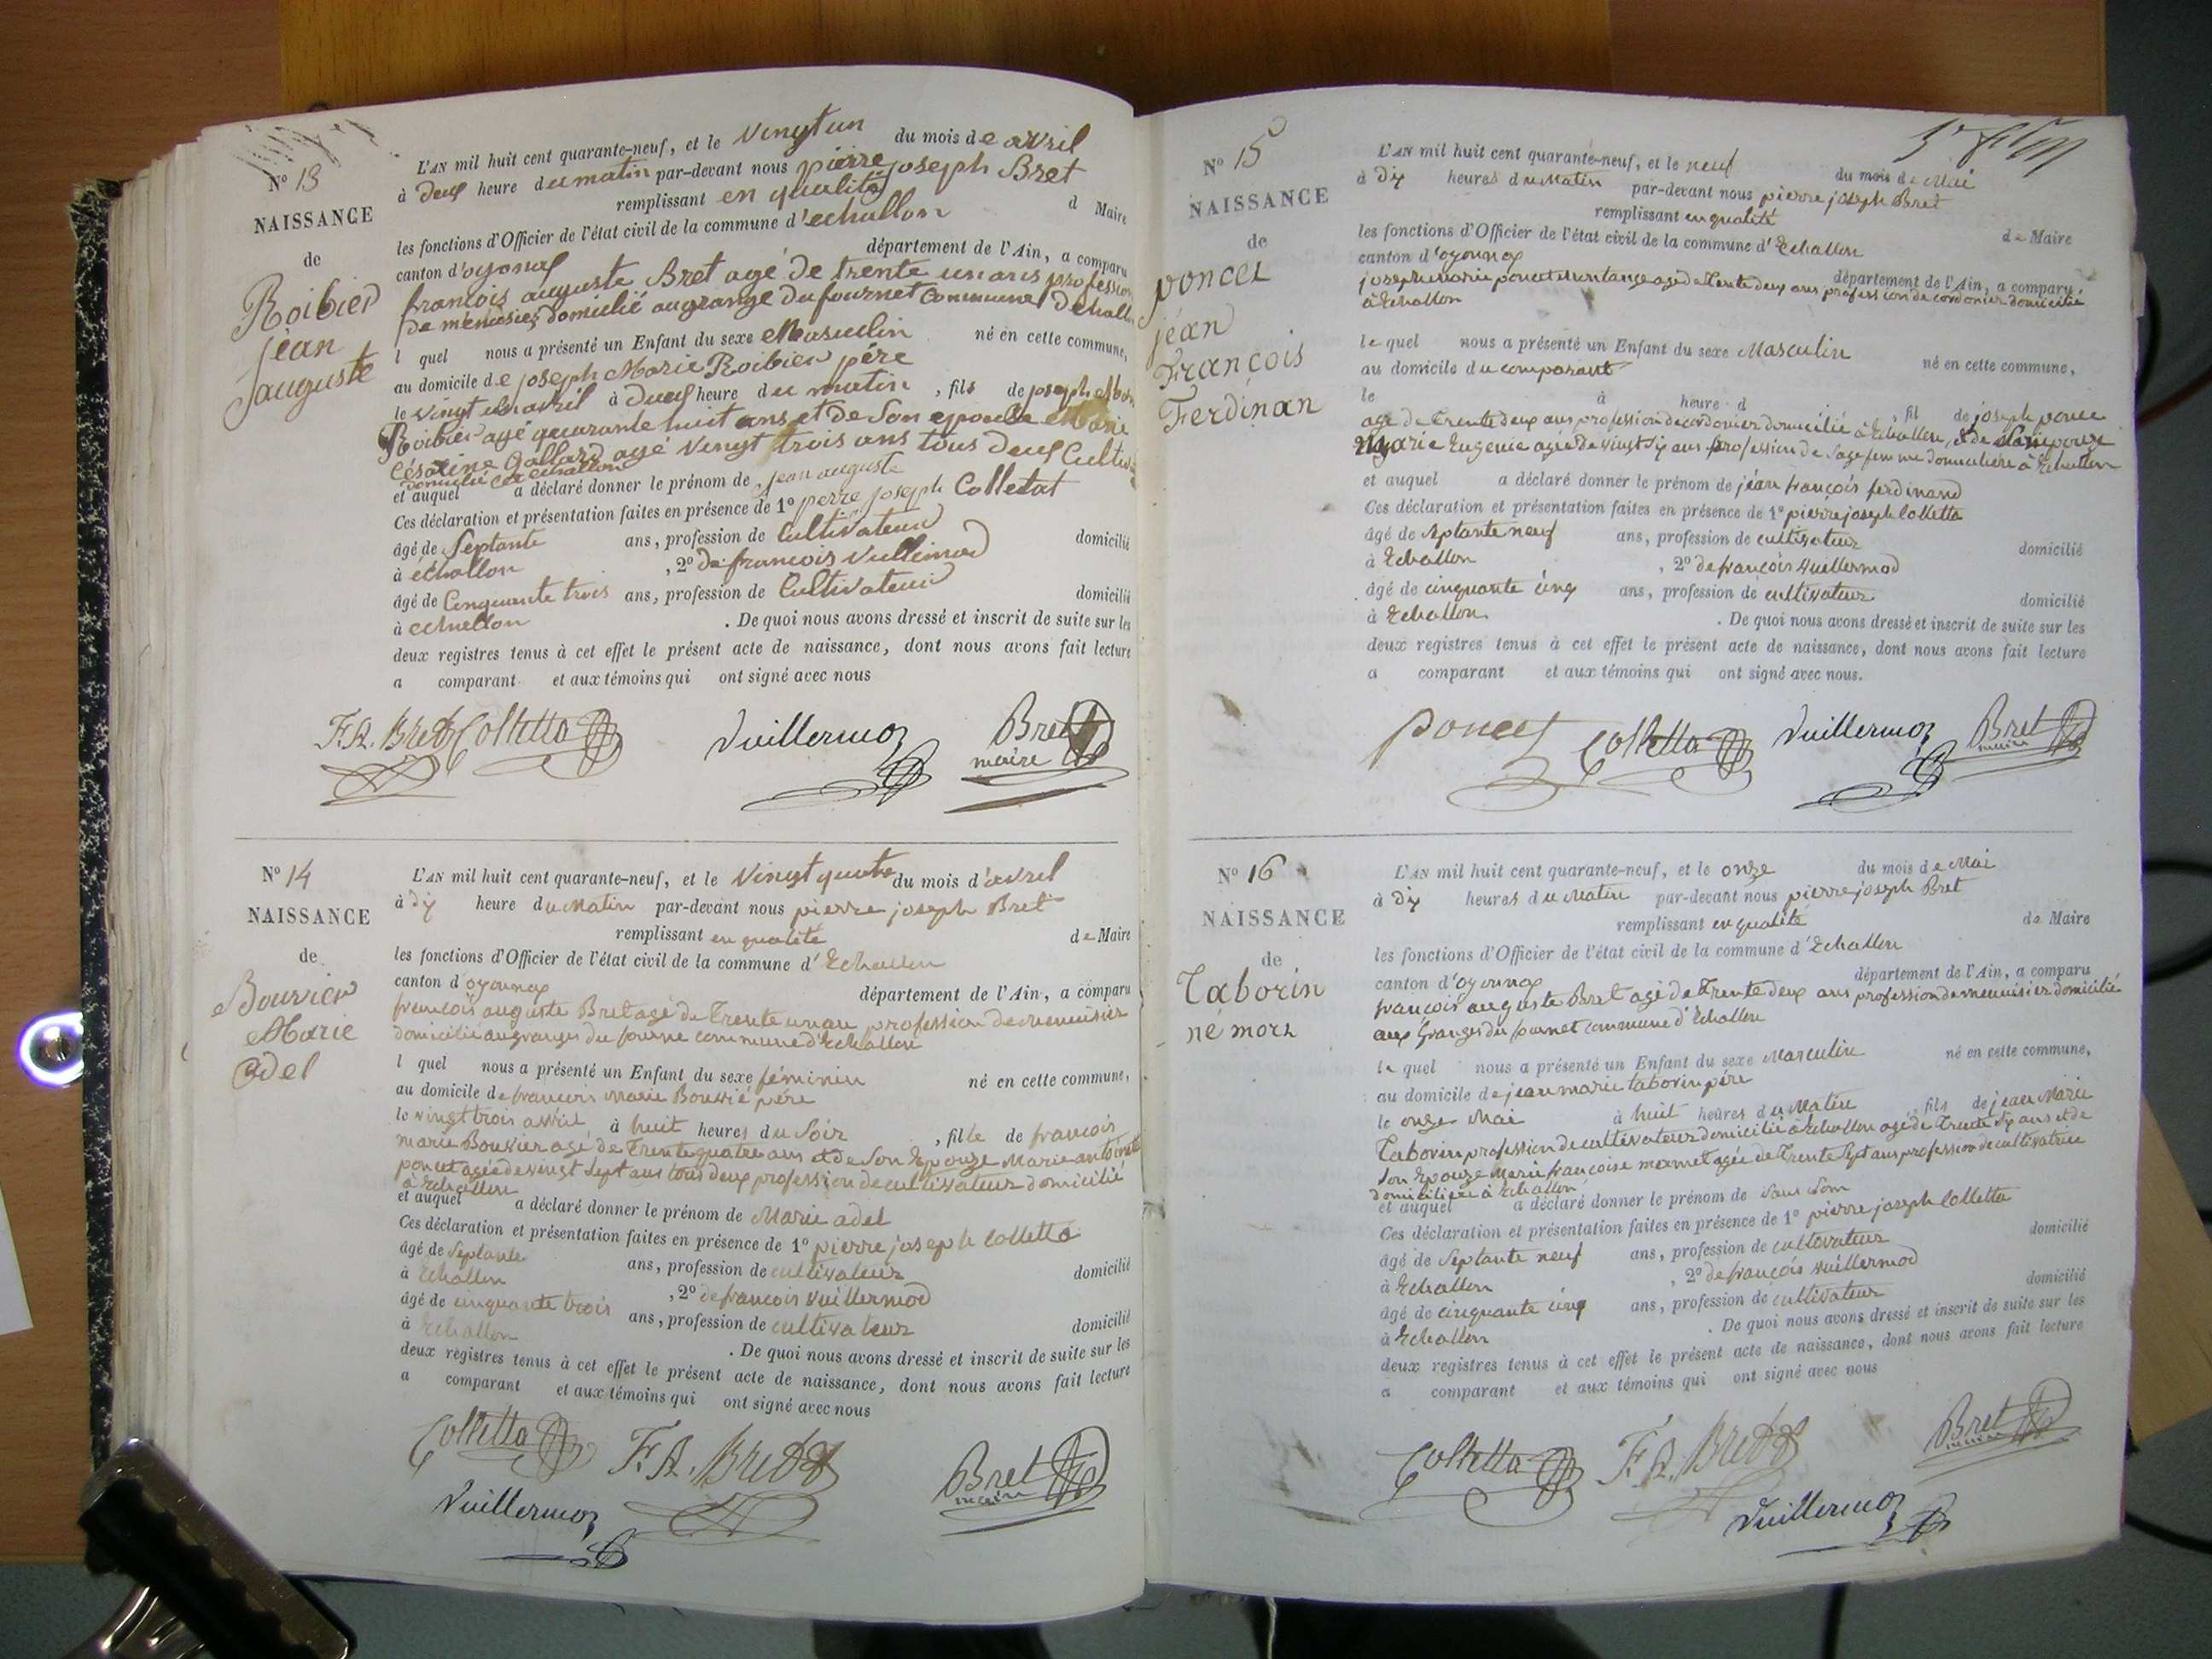 N° 13
NAISSANCE
de
Roibier
jean
auguste
L'AN mil huit cent quarante-neuf, et le vingt un du mois de avril
à deux heure du matin par-devant nous pierre joseph Bret
remplissant en qualité d Maire
les fonctions d'Officier de l'état civil de la commune d'echallon
canton d'oyonax département de l'Ain, a comparu
francois auguste Bret agé de trente un ans profession
de menuisier domicilié au grange du fournet commune dechall
l quel nous a présenté un Enfant du sexe Masculin né en cette commune,
au domicile de joseph Marie Roibier père
le vingt un avril à deux heure du matin, fils de joseph Marie
Roibier agé quarante huit ans et de son epouse Marie
Césarine Gallard agé vingt trois ans tous deux Cultiv
domicilié a echallon
et auquel a déclaré donner le prénom de jean auguste
Ces déclaration et présentation faites en présence de 1° pierre joseph Colletat
âgé de Septante ans, profession de Cultivateur domicilié
à échallon, 2° de francois Vullimod
âgé de Cinquante trois ans, profession de Cultivateur domicilié
à echallon. De quoi nous avons dressé et inscrit de suite sur les
deux registres tenus à cet effet le présent acte de naissance, dont nous avons fait lecture
a comparant et aux témoins qui ont signé avec nous
F.A. Bret Colletta Vuillermoz Bret
maire
N° 14
NAISSANCE
de
Bouvier
Marie
Adel
L'AN mil huit cent quarante-neuf, et le vingt quatre du mois d'avril
à dix heure du Matin par-devant nous pierre joseph Bret
remplissant en qualité de Maire
les fonctions d'Officier de l'état civil de la commune d'Echallon
canton d'oyounax département de l'Ain, a comparu
francois auguste Bret agé de trente un an profession de menuisier
domicilié au granges du fourne commune d'Echallon
l quel nous a présenté un Enfant du sexe féminin né en cette commune,
au domicile de francois Marie Bouvié père
le vingt trois avril à huit heures du Soir, fille de francois
marie Bouvier agé de Trente quatre ans et de Son Epouze Marie antoine
poncet agée de vingt Sept ans tous deux profession de cultivateur domicilié
à Echallon
et auquel a déclaré donner le prénom de Marie adel
Ces déclaration et présentation faites en présence de 1° pierre joseph Colletta
âgé de Septante ans, profession de cultivateur domicilié
à Echallon, 2° de francois Vuillermod
âgé de cinquante trois ans, profession de cultivateur domicilié
à Echallon. De quoi nous avons dressé et inscrit de suite sur les
deux registres tenus à cet effet le présent acte de naissance, dont nous avons fait lecture
a comparant et aux témoins qui ont signé avec nous
Colletta F.A. Bret Bret
maire
Vuillermoz
N° 15
NAISSANCE
de
poncet
jéan
François
Ferdinan
L'AN mil huit cent quarante-neuf, et le neuf du mois de Mai
à dix heures du Matin par-devant nous pierre joseph Bret
remplissant en qualité de Maire
les fonctions d'Officier de l'état civil de la commune d'Echallon
canton d'oyounax département de l'Ain, a comparu
joseph marie poncet agé de Trente deux ans profession de cordonier domicilié
à Echallon
le quel nous a présenté un Enfant du sexe Masculin né en cette commune,
au domicile du comparant
le à heure d, fil de joseph ponce
agé de Trente deux ans profession de cordonier domicilié à Echallon, & de Son epouze
Marie Eugenie agée de vingt Six ans profession de Sage femme domiciliere à Echallon
et auquel a déclaré donner le prénom de jéan françois ferdinand
Ces déclaration et présentation faites en présence de 1° pierre joseph Colletta
âgé de Septante neuf ans, profession de cultivateur domicilié
à Echallon, 2° de françois Vuillermod
âgé de cinquante cinq ans, profession de cultivateur domicilié
à Echallon. De quoi nous avons dressé et inscrit de suite sur les
deux registres tenus à cet effet le présent acte de naissance, dont nous avons fait lecture
a comparant et aux témoins qui ont signé avec nous.
Poncet Colletta Vuillermoz Bret
maire
N° 16
NAISSANCE
de
Taborin
né mort
L'AN mil huit cent quarante-neuf, et le onze du mois de Mai
à dix heures du Matin par-devant nous pierre joseph Bret
remplissant en qualité de Maire
les fonctions d'Officier de l'état civil de la commune d'Echallon
canton d'oyounax département de l'Ain, a comparu
francois auguste Bret agé de Trente deux ans profession de menuisier domicilié
aux Granges du fournet commune d'Echallon
le quel nous a présenté un Enfant du sexe Masculin né en cette commune,
au domicile de jean marie taborin père
le onze Mai à huit heures du Matin, fils de jean Marie
Taborin profession de cultivateur domicilié à Echallon agé de Trente Six ans et de
Son Epouze Marie françoise mermet agée de Trente Sept ans profession de cultivatrice
domiciliée à Echallon
et auquel a déclaré donner le prénom de Sans nom
Ces déclaration et présentation faites en présence de 1° pierre joseph Colletta
âgé de Septante neuf ans, profession de cultivateur domicilié
à Echallon, 2° de françois Vuillermod
âgé de cinquante cinq ans, profession de cultivateur domicilié
à Echallon. De quoi nous avons dressé et inscrit de suite sur les
deux registres tenus à cet effet le présent acte de naissance, dont nous avons fait lecture
a comparant et aux témoins qui ont signé avec nous
Colletta F.A. Bret Bret
maire
Vuillermoz